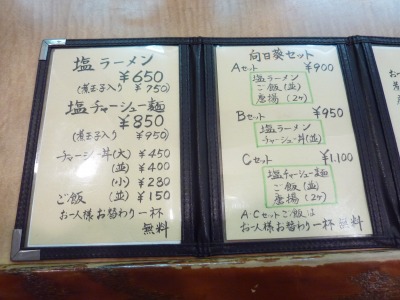 塩ラーメン
￥650
(煮玉子入り ￥750)
塩チャーシュー麺
￥850
(煮玉子入り ￥950)
チャーシュー丼(大) ￥450
(並) ￥400
(小) ￥280
ご飯 (並) ￥150
お一人様お替わり一杯
無料
向日葵セット
Aセット ￥900
塩ラーメン
ご飯(並)
唐揚(2ヶ)
Bセット ￥950
塩ラーメン
チャーシュー丼(並)
Cセット ￥1,100
塩チャーシュー麺
ご飯(並)
唐揚(2ヶ)
A・Cセットご飯は
お一人様お替わり一杯 無料